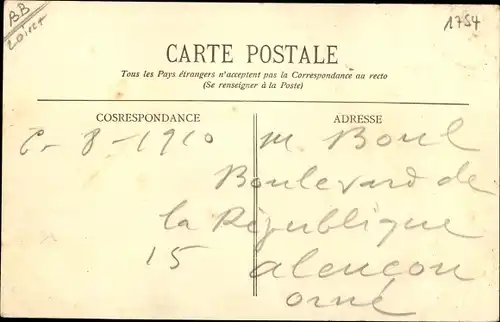 BB
Loiret
1754
CARTE POSTALE
Tous les Pays étrangers n'acceptent pas la Correspondance au recto
(Se renseigner à la Poste)
COSRESPONDANCE
6-8-1910
ADRESSE
M. Boul
Boulevard de
la République
15
alençon
orne